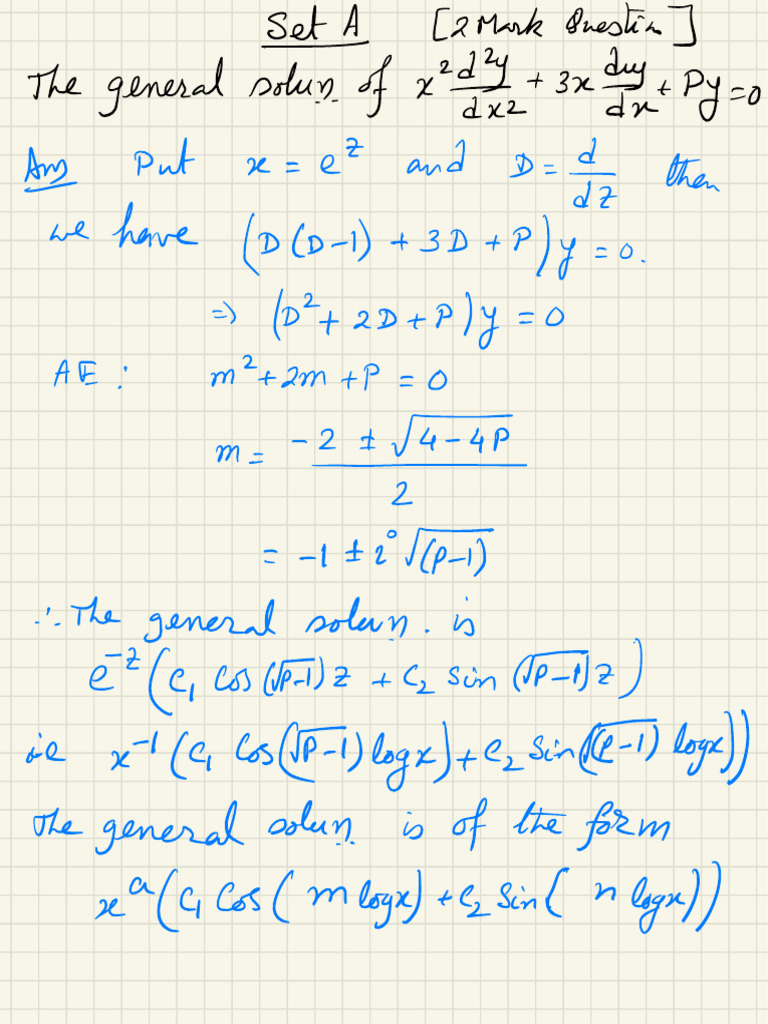 Set A [2 Mark Question]
The general solun. of x² d²y/dx² + 3x dy/dx + Py = 0
Ans Put x = e^z and D = d/dz then
we have (D(D-1) + 3D + P)y = 0.
=> (D² + 2D + P)y = 0
AE : m² + 2m + P = 0
m = (-2 ± √(4-4P))/2
= -1 ± i√(P-1)
∴ The general solun. is
e^-z (C₁ Cos (√P-1) z + C₂ Sin (√P-1) z)
ie x^-1 (C₁ Cos (√P-1) log x) + C₂ Sin (√(P-1) log x))
The general solun. is of the form
x^a (C₁ Cos ( m log x) + C₂ Sin ( n log x))